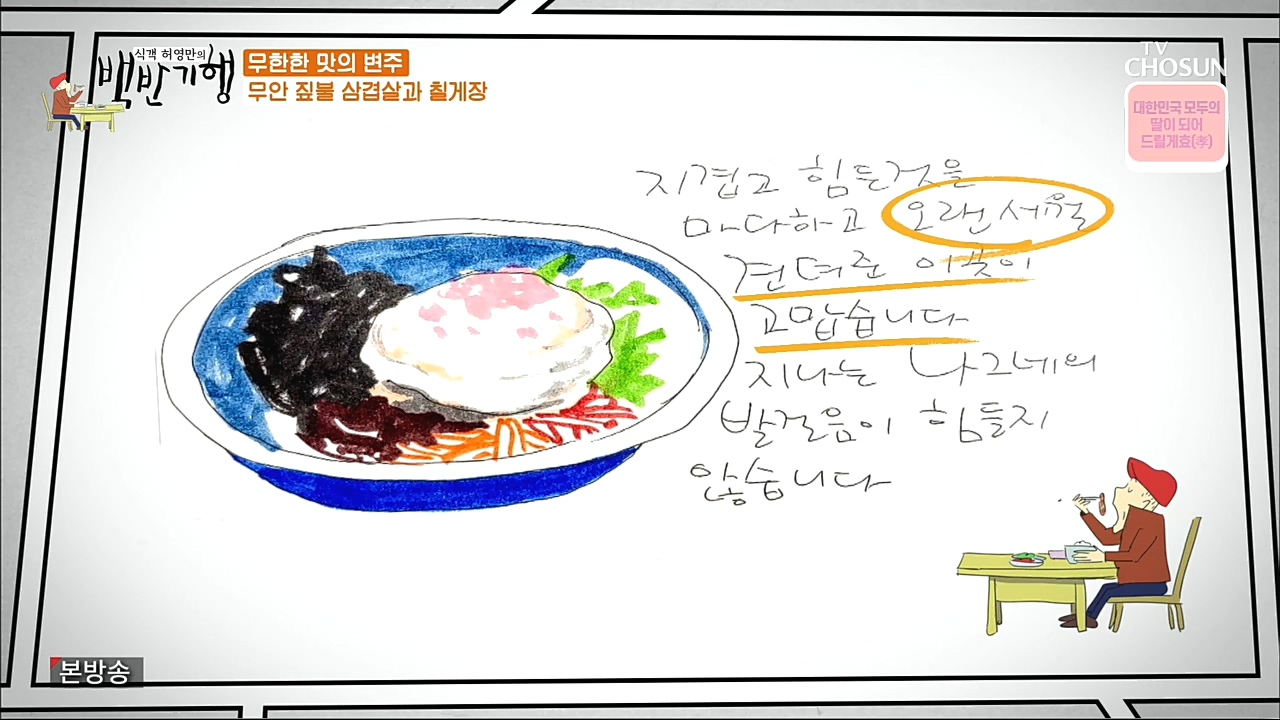 식객 허영만의
백반기행
무한한 맛의 변주
무안 짚불 삼겹살과 칠게장
TV
CHOSUN
대한민국 모두의
딸이 되어
드릴게효(孝)
지겹고 힘든것을
마다하고 오랜세월
견뎌준 이곳이
고맙습니다
지나는 나그네의
발걸음이 힘들지
않습니다
본방송